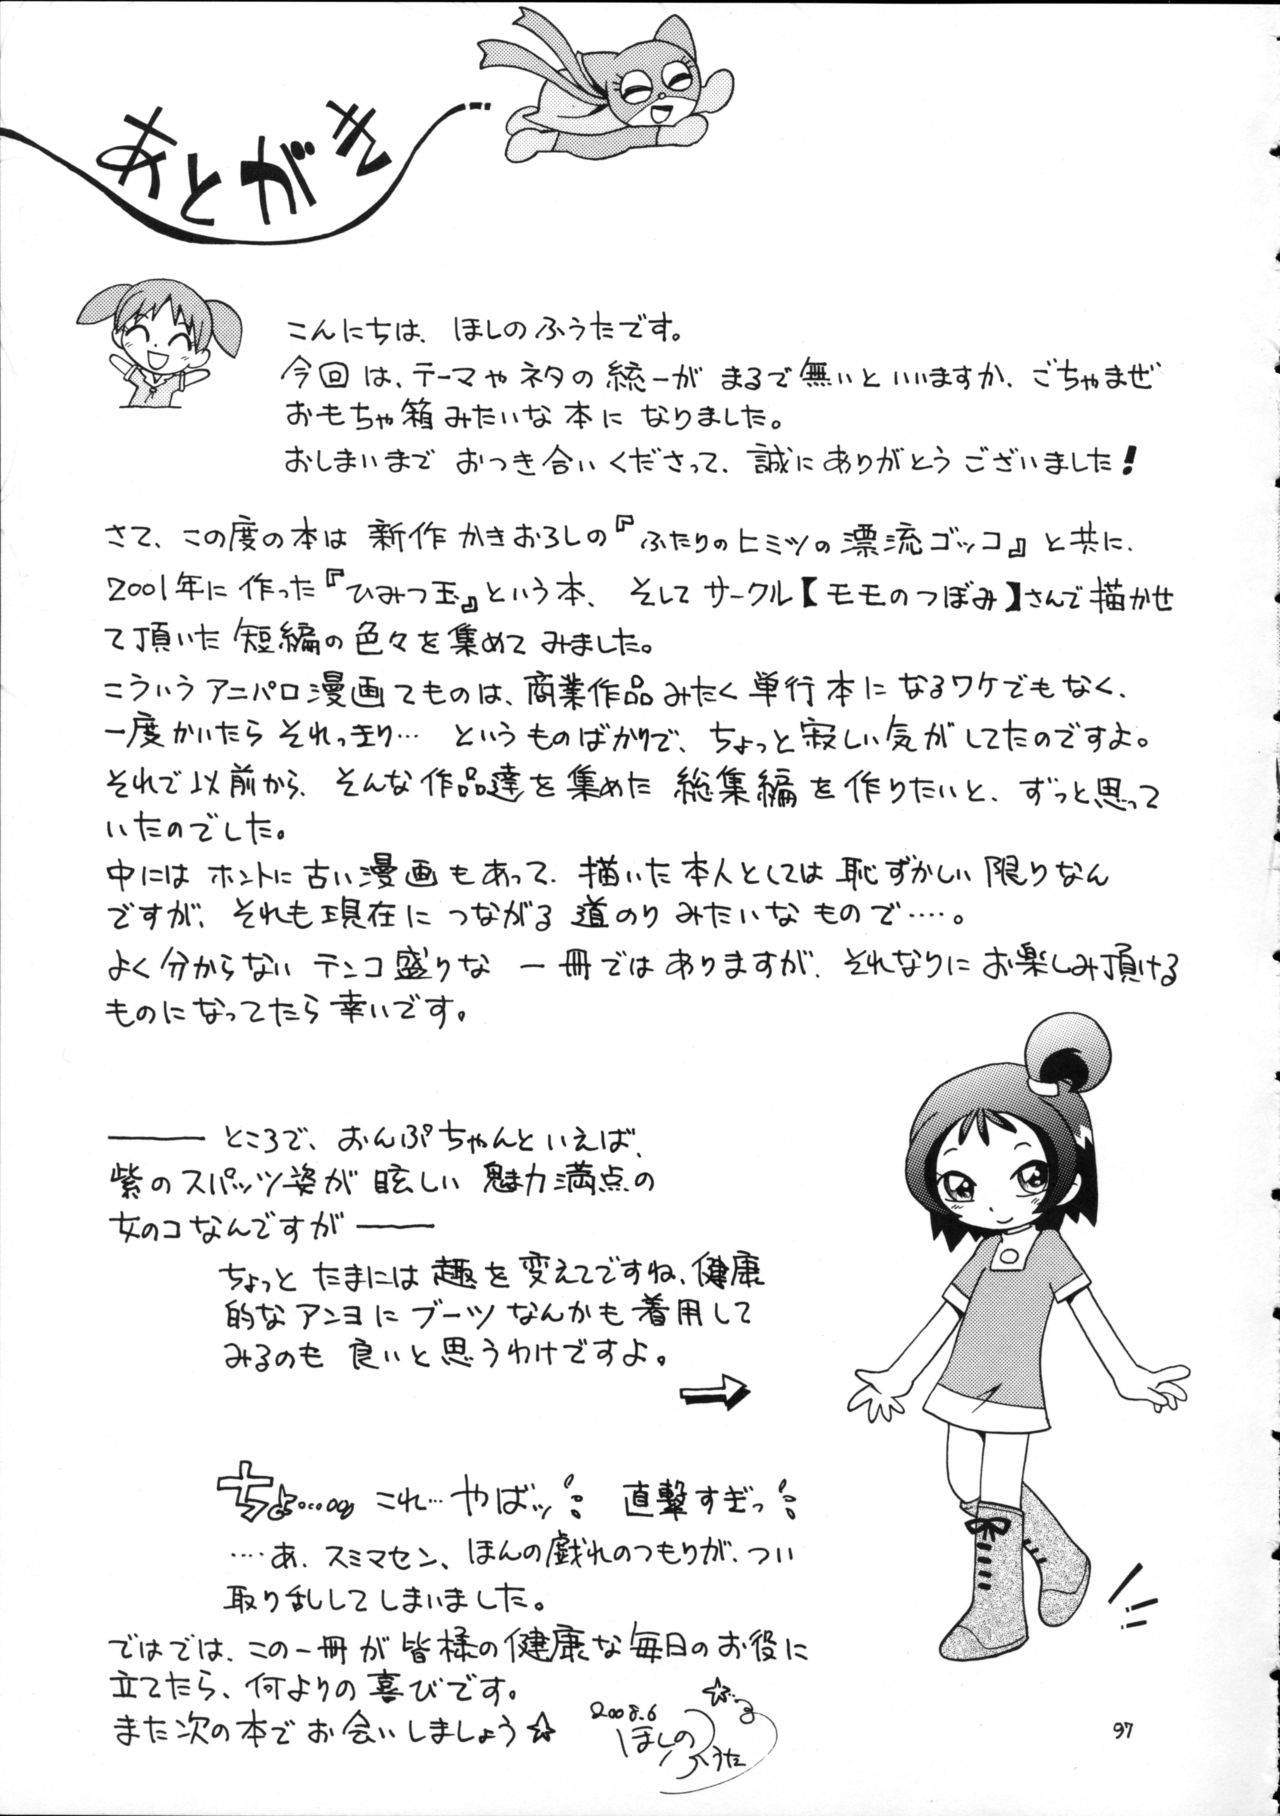 あとがき
こんにちは、ほしのふうたです。
今回は、テーマやネタの統一がまるで無いといいますか、ごちゃまぜ
おもちゃ箱みたいな本になりました。
おしまいまでおつき合いくださって、誠にありがとうございました!
さて、この度の本は新作かきおろしの『ふたりのヒミツの漂流ゴッコ』と共に、
2001年に作った『ひみつ玉』という本、そしてサークル【モモのつぼみ】さんで描かせ
て頂いた短編の色々を集めてみました。
こういうアニパロ漫画てものは、商業作品みたく単行本になるワケでもなく、
一度かいたらそれっきり…というものばかりで、ちょっと寂しい気がしてたのですよ。
それで以前から、そんな作品達を集めた総集編を作りたいと、ずっと思って
いたのでした。
中にはホントに古い漫画もあって、描いた本人としては恥ずかしい限りなん
ですが、それも現在につながる道のりみたいなもので‥‥。
よく分からないテンコ盛りな一冊ではありますが、それなりにお楽しみ頂ける
ものになってたら幸いです。
――ところで、おんぷちゃんといえば、
紫のスパッツ姿が眩しい魅力満点の
女のコなんですが――
ちょっとたまには趣を変えてですね、健康
的なアンヨにブーツなんかも着用して
みるのも良いと思うわけですよ。
ちょ…… これ…やばッ 直撃すぎっ
‥‥あ、スミマセン、ほんの戯れのつもりが、つい
取り乱してしまいました。
ではでは、この一冊が皆様の健康な毎日のお役に
立てたら、何よりの喜びです。
また次の本でお会いしましょう☆
2008.6
ほしの
ふうた
97